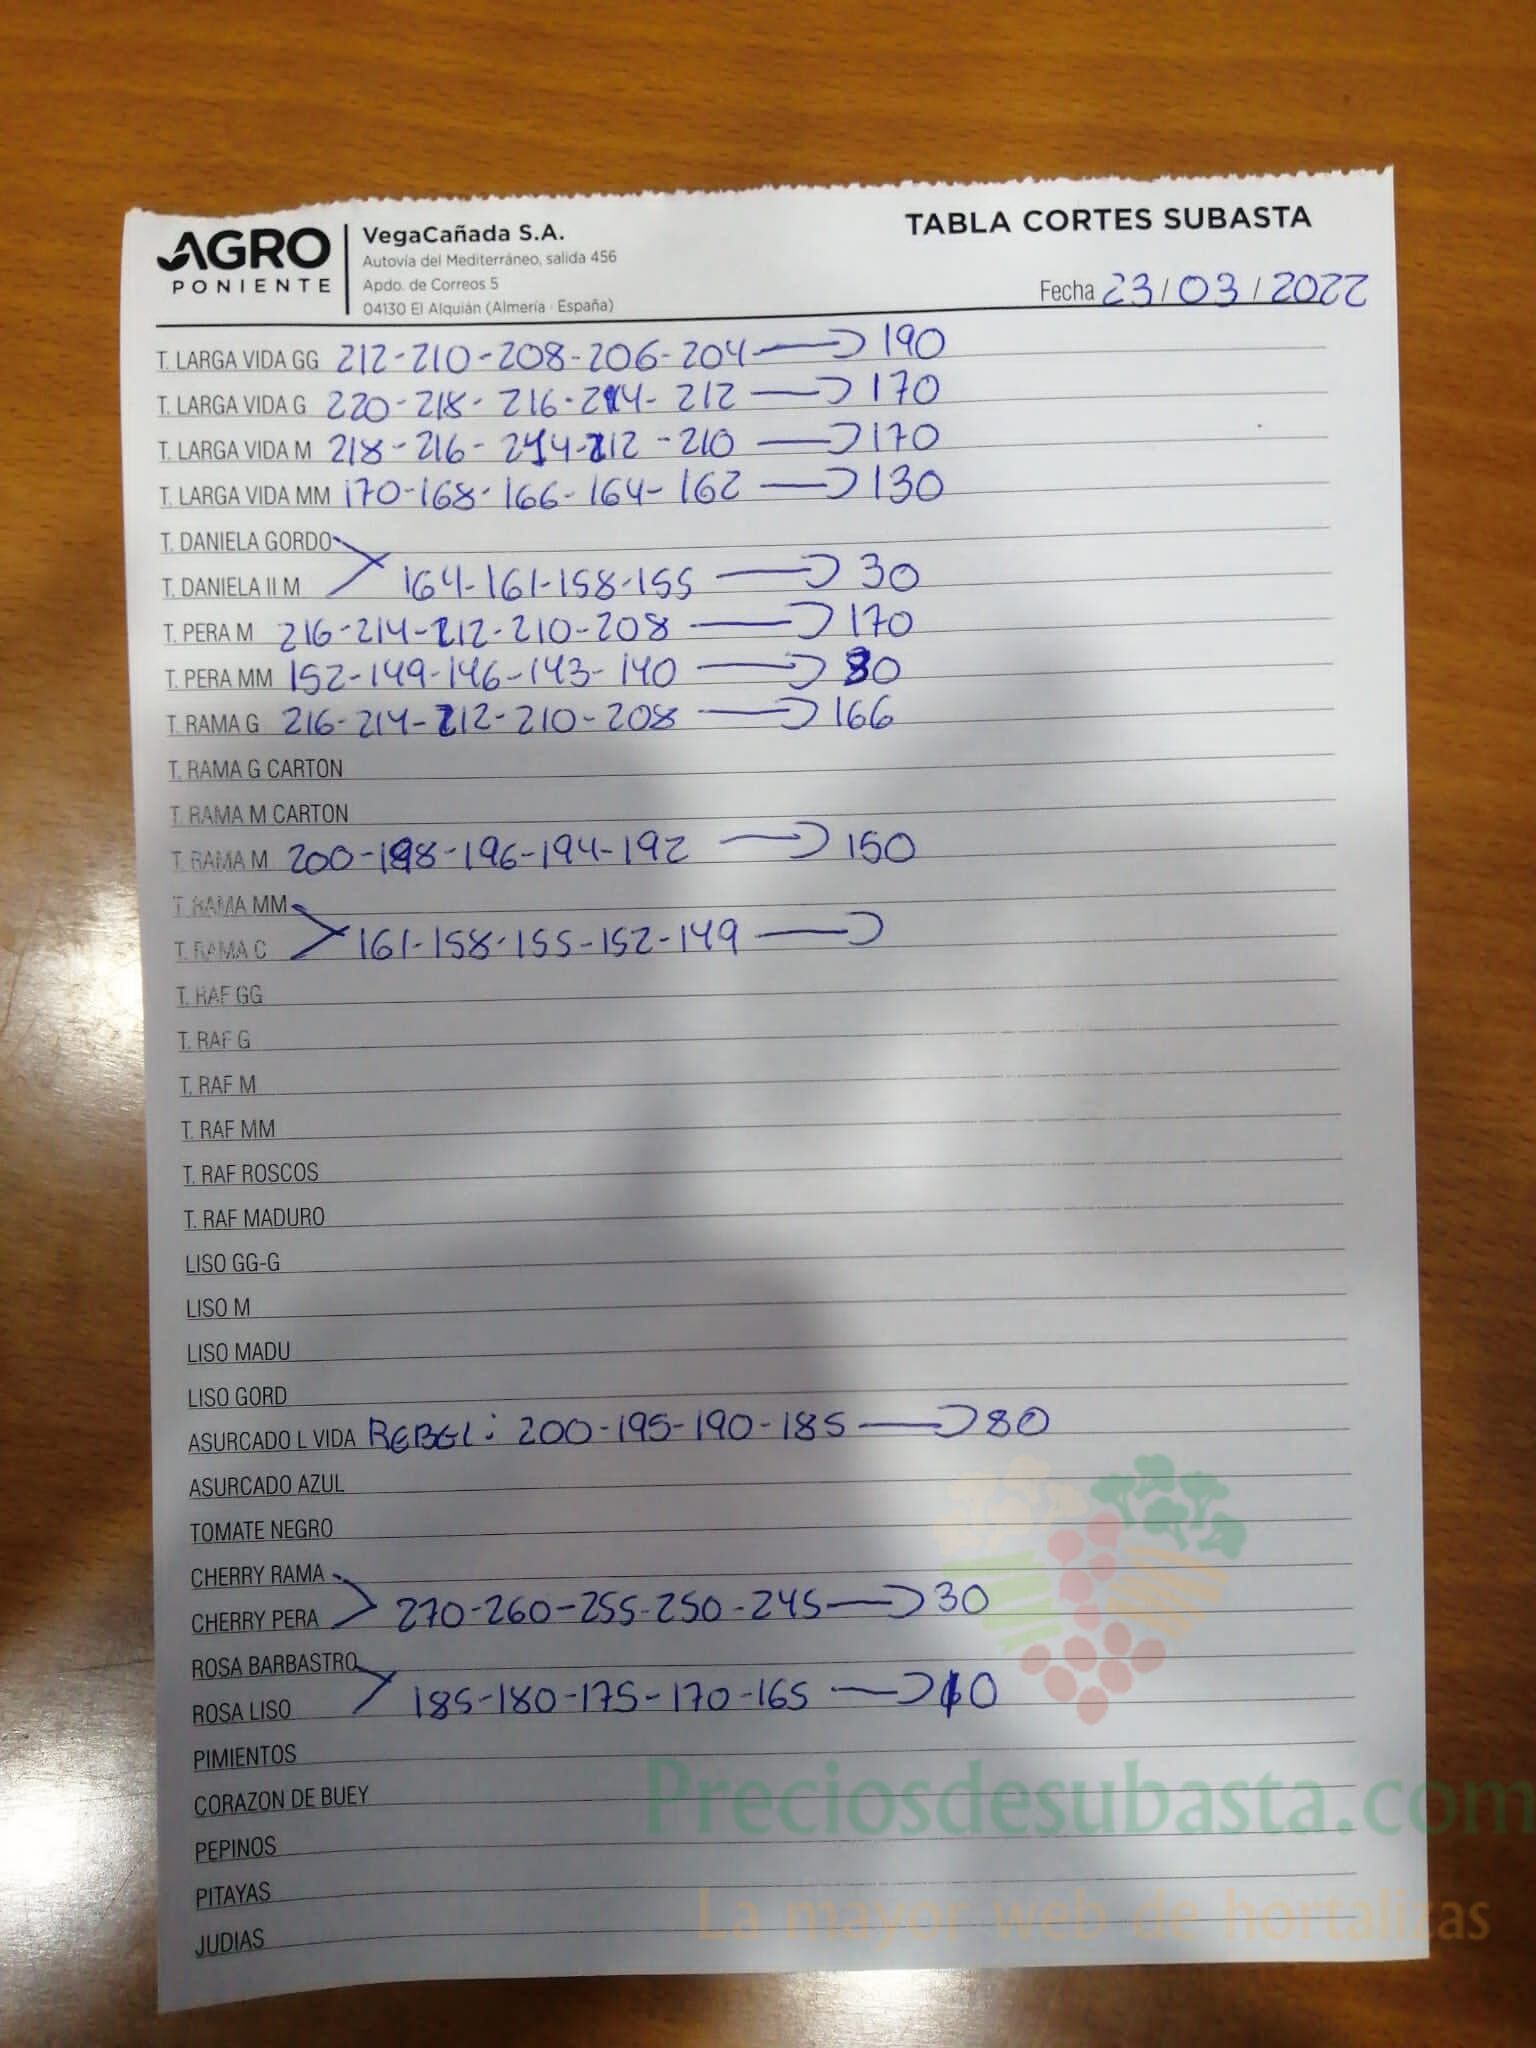 AGRO
PONIENTE
VegaCañada S.A.
Autovía del Mediterráneo, salida 456
Apdo. de Correos 5
04130 El Alquián (Almería · España)
TABLA CORTES SUBASTA
Fecha 23/03/2022
T. LARGA VIDA GG 212-210-208-206-204 → 190
T. LARGA VIDA G 220-218-216-214-212 → 170
T. LARGA VIDA M 218-216-214-212-210 → 170
T. LARGA VIDA MM 170-168-166-164-162 → 130
T. DANIELA GORDO
T. DANIELA II M 164-161-158-155 → 30
T. PERA M 216-214-212-210-208 → 170
T. PERA MM 152-149-146-143-140 → 80
T. RAMA G 216-214-212-210-208 → 166
T. RAMA G CARTON
T. RAMA M CARTON
T. RAMA M 200-198-196-194-192 → 150
T. RAMA MM
T. RAMA C 161-158-155-152-149 →
T. RAF GG
T. RAF G
T. RAF M
T. RAF MM
T. RAF ROSCOS
T. RAF MADURO
LISO GG-G
LISO M
LISO MADU
LISO GORD
ASURCADO L VIDA REBEL: 200-195-190-185 → 80
ASURCADO AZUL
TOMATE NEGRO
CHERRY RAMA
CHERRY PERA 270-260-255-250-245 → 30
ROSA BARBASTRO
ROSA LISO 185-180-175-170-165 →
PIMIENTOS
CORAZON DE BUEY
Preciosdesubasta.com
PEPINOS
PITAYAS
La mayor web de hortalizas
JUDIAS